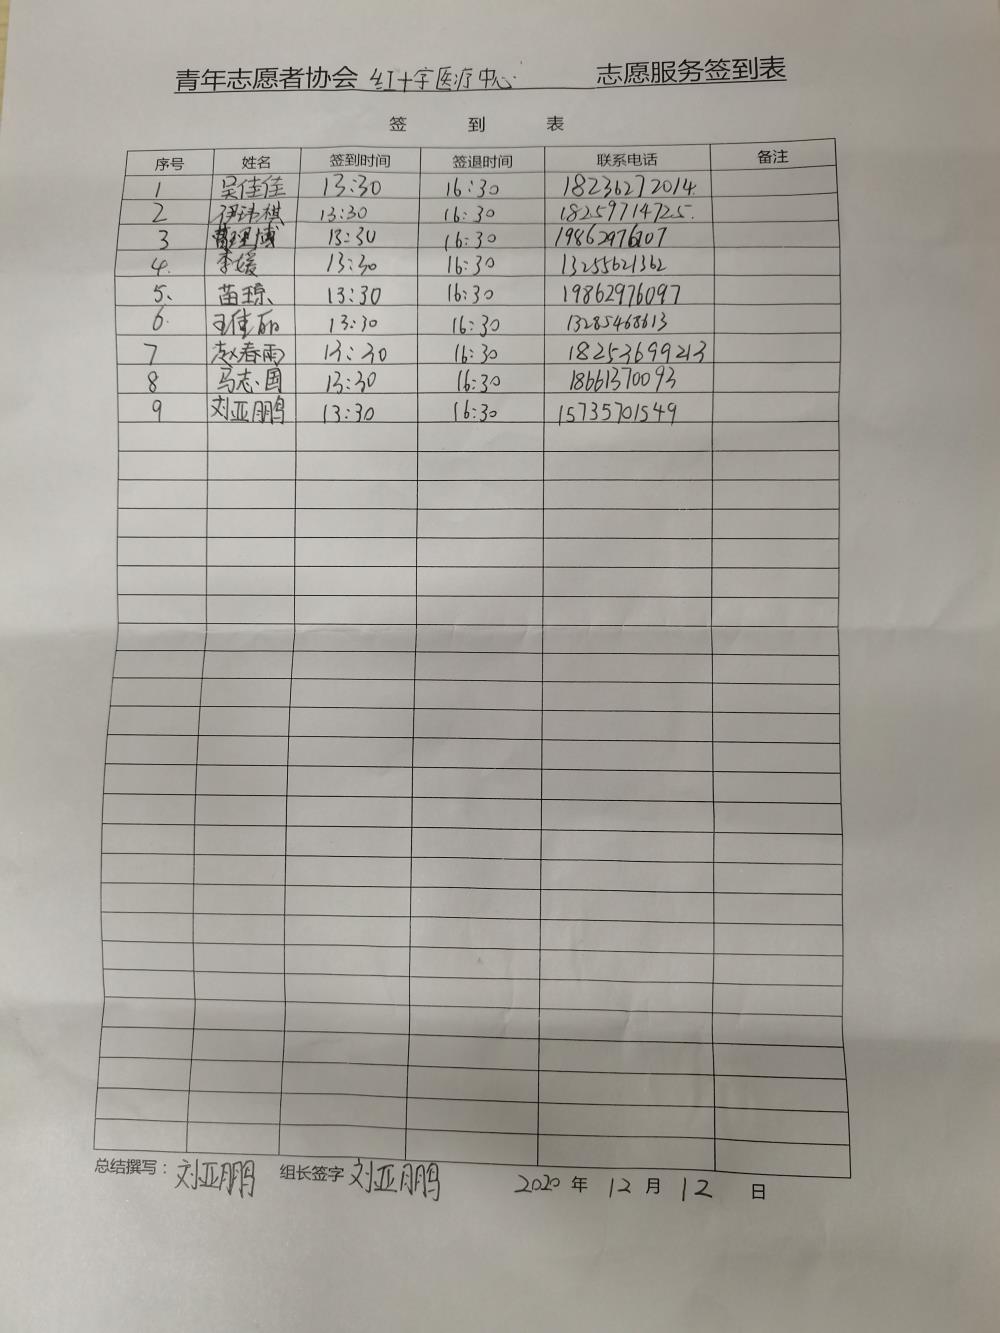 青年志愿者协会 红十字医疗中心 志愿服务签到表
签 到 表
序号 姓名 签到时间 签退时间 联系电话 备注
1 吴佳佳 13:30 16:30 18236272014.
2 伊玮祺 13:30 16:30 18259714725.
3 13:30 16:30 19862976107
4. 李媛 13:30 16:30 13255621362
5、 苗琼 13:30 16:30 19862976097
6. 王佳丽 13:30 16:30 13285468613
7 赵春雨 13:30 16:30 18253699213
8 马志国 13:30 16:30 18661370093
9 刘亚鹏 13:30 16:30 15735701549
总结撰写： 刘亚鹏 组长签字 刘亚鹏 2020 年 12 月 12 日